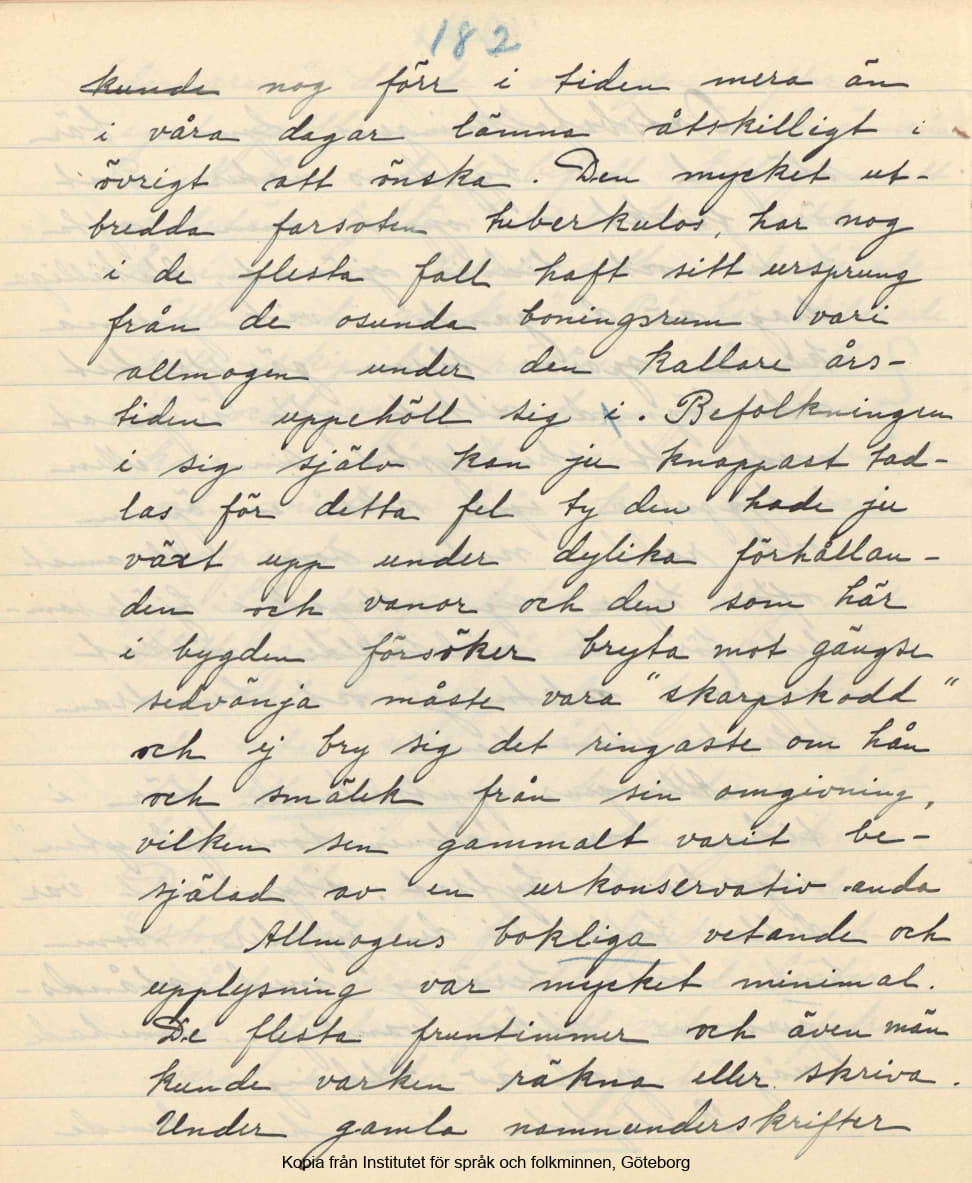 182
kunde nog förr i tiden mera än
i våra dagar lämna åtskilligt i
övrigt att önska. Den mycket ut-
bredda farsoten tuberkulos, har nog
i de flesta fall haft sitt ursprung
från de osunda boningsrum vari
allmogen under den kallare års-
tiden uppehöll sig i. Befolkningen
i sig själv kan ju knappast tad-
las för detta fel ty den hade ju
växt upp under dylika förhållan-
den och vanor och den som här
i bygden försöker bryta mot gängse
sedvänja måste vara "skarpskodd"
och ej bry sig det ringaste om hån
och smälek från sin omgivning,
vilken sen gammalt varit be-
själad av en urkonservativ anda
Allmogens bokliga vetande och
upplysning var mycket minimal.
De flesta fruntimmer och även män
kunde varken räkna eller skriva.
Under gamla namnunderskrifter
Kopia från Institutet för språk och folkminnen, Göteborg